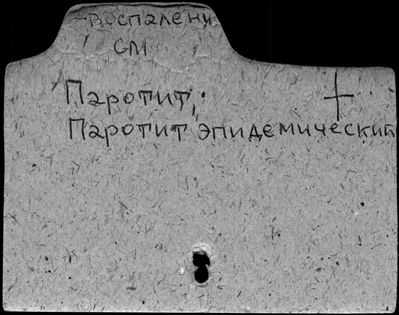 -воспалени
см
Паротит,
Паротит эпидемический